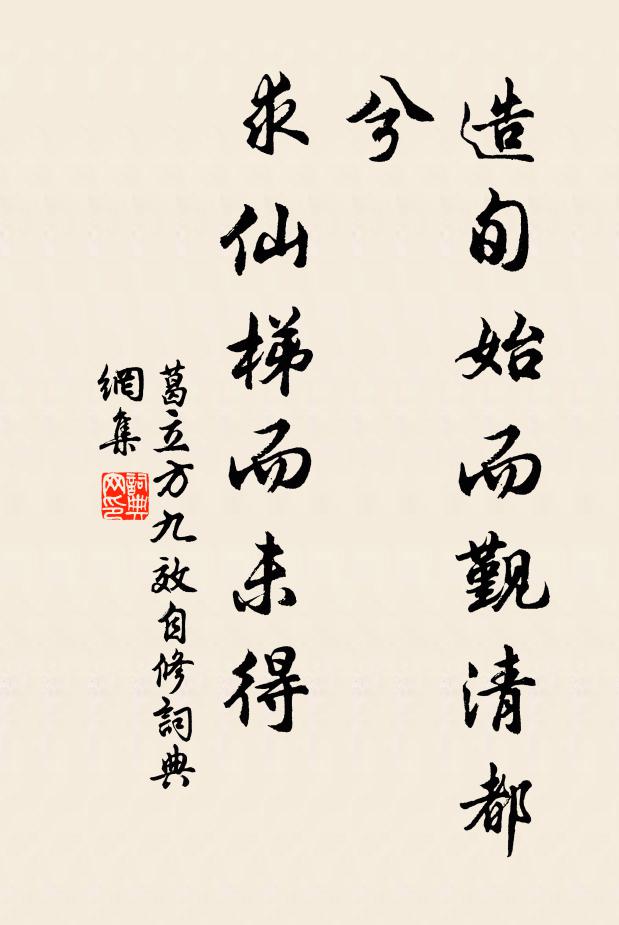 造旬始而觀清都
兮
求仙梯而未得
葛立方九效自修詞典
網集
詞典
网印